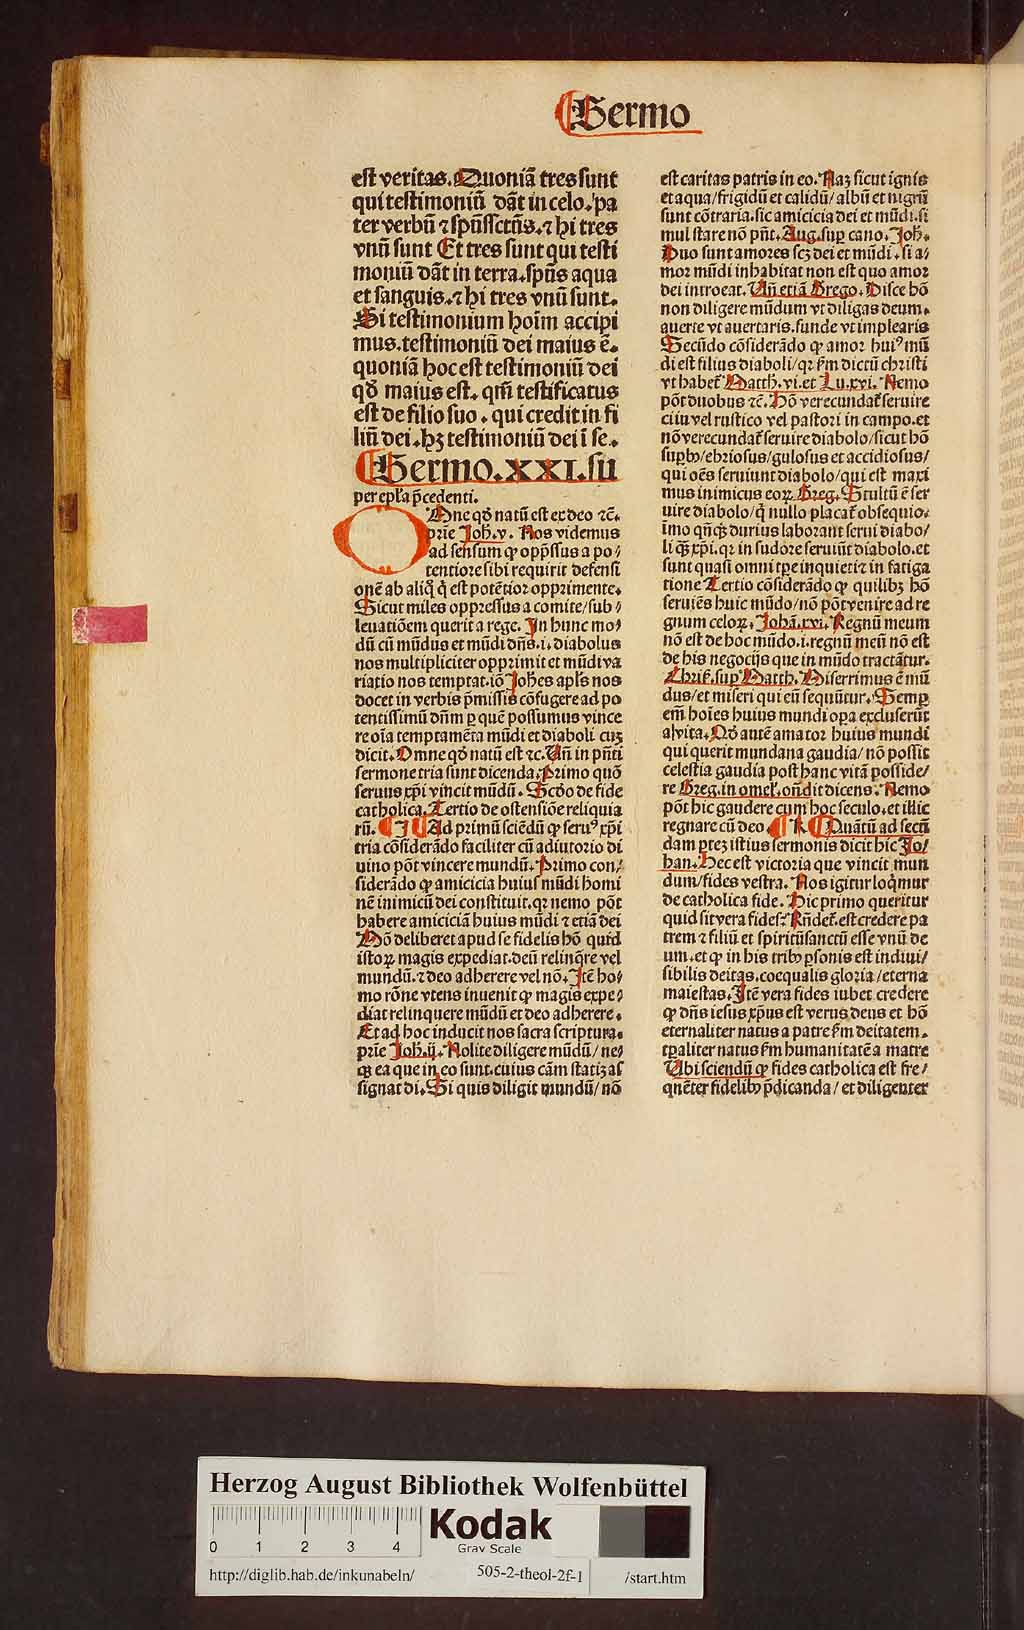 Sermo
est veritas. Quoniã tres sunt
qui testimoniũ dãt in celo. pa
ter verbũ ⁊ spũssctũs. ⁊ hi tres
vnũ sunt Et tres sunt qui testi
moniũ dãt in terra. spũs aqua
et sanguis. ⁊ hi tres vnũ sunt.
Si testimonium hoĩm accipi
mus. testimoniũ dei maius ẽ.
quoniã hoc est testimoniũ dei
qđ maius est. qm̃ testificatus
est de filio suo. qui credit in fi
liũ dei. hʒ testimoniũ dei ĩ se.
Sermo. XXI. su
per ep̃la p̃cedenti.
OMne qđ natũ est ex deo ⁊c̃.
prĩe Joh̃. v. Nos videmus
ad sensum ꝙ opp̃ssus a po/
tentiore sibi requirit defensi
onẽ ab aliq̃ q̃ est potẽtior opprimente.
Sicut miles oppressus a comite/sub/
leuatiõem querit a rege. In hunc mo/
dũ cũ mũdus et mũdi dñs. i. diabolus
nos multipliciter opprimit et mũdi va
riatio nos temptat. iõ Joh̃es apl̃s nos
docet in verbis p̃missis cõfugere ad po
tentissimũ dñm ꝑ quẽ possumus vince
re oĩa temptamẽta mũdi et diaboli cuʒ
dicit. Omne qđ natũ est ⁊c. Uñ in pñti
sermone tria sunt dicenda. Primo quõ
seruus xp̃i vincit mũdũ. Scđo de fide
catholica. Tertio de ostensiõe reliquia
rũ. ¶ I ¶ Ad primũ sciẽdũ ꝙ seruꝰ xp̃i
tria cõsiderãdo faciliter cũ adiutorio di
uino põt vincere mundũ. Primo con/
siderãdo ꝙ amicicia huius mũdi homi
nẽ inimicũ dei constituit. qꝛ nemo põt
habere amiciciã huius mũdi ⁊ etiã dei
Hõ deliberet apud se fidelis hõ quid
istoꝝ magis expediat. deũ relinq̃re vel
mundũ. ⁊ deo adherere vel nõ. Itẽ ho/
mo rõne vtens inuenit ꝙ magis expe/
diat relinquere mũdũ et deo adherere.
Et ad hoc inducit nos sacra scriptura.
prĩe Joh̃. ij. Nolite diligere mũdũ/ne/
qꝫ ea que in eo sunt. cuius cãm statĩ as
signat dĩ. Si quis diligit mundũ/nõ
est caritas patris in eo. Naʒ sicut ignis
et aqua/frigidũ et calidũ/albũ et nigrũ
sunt cõtraria. sic amicicia dei et mũdi. si
mul stare nõ pñt. Aug. suꝑ cano. Joh̃.
Duo sunt amores scʒ dei et mũdi. si a/
mor mũdi inhabitat non est quo amor
dei introeat. Uñ etiã Grego. Disce hõ
non diligere mũdum vt diligas deum.
auerte vt auertaris. funde vt implearis
Secũdo cõsiderãdo ꝙ amor huiꝰ mũ
di est filius diaboli/qꝛ ẜm dictũ christi
vt habet᷑ Matth. vi. et Lu. xvi. Nemo
põt duobus ⁊c̃. Hõ verecundat᷑ seruire
ciui vel rustico vel pastori in campo. et
nõ verecundat᷑ seruire diabolo/sicut hõ
suꝑbꝰ/ebriosus/gulosus et accidiosus/
qui oẽs seruiunt diabolo/qui est maxi
mus inimicus eoꝝ. Greg. Stultũ ẽ ser
uire diabolo/q̃ nullo placat᷑ obsequio.
ĩmo qñqꝫ durius laborant serui diabo/
li qꝫ xp̃i. qꝛ in sudore seruiũt diabolo. et
sunt quasi omni tp̃e inquieti ⁊ in fatiga
tione Tertio cõsiderãdo ꝙ quilibʒ hõ
seruiẽs huic mũdo/nõ põt venire ad re
gnum celoꝝ. Johã. xvi. Regnũ meum
nõ est de hoc mũdo. i. regnũ meũ nõ est
de his negocijs que in mũdo tractãtur.
Chris̃. suꝑ Matth. Miserrimus ẽ mũ
dus/et miseri qui eũ sequũtur. Semꝑ
em̃ hoĩes huius mundi oꝑa excluserũt
a vita. Qđ autẽ amator huius mundi
qui querit mundana gaudia/nõ possit
celestia gaudia post hanc vitã posside/
re Greg. in omel̃. oñdit dicens. Nemo
põt hic gaudere cum hoc seculo. et illic
regnare cũ deo ¶ K ¶ Quãtũ ad secũ
dam ꝑteʒ istius sermonis dicit hic Jo/
han. Hec est victoria que vincit mun
dum/fides vestra. Nos igitur loq̃mur
de catholica fide. Hic primo queritur
quid sit vera fides? Rñdet᷑. est credere pa
trem ⁊ filiũ et spiritũsanctũ esse vnũ de
um. et ꝙ in his tribꝰ ꝑsonis est indiui/
sibilis deitas. coequalis gloria/eterna
maiestas. Itẽ vera fides iubet credere
ꝙ dñs iesus xp̃us est verus deus et hõ
eternaliter natus a patre ẜm deitatem.
tp̃aliter natus ẜm humanitatẽ a matre
Ubi sciendũ ꝙ fides catholica est fre/
quẽter fidelibꝰ p̃dicanda/et diligenter
Herzog August Bibliothek Wolfenbüttel
0 1 2 3 4
Kodak
Gray Scale
http://diglib.hab.de/inkunabeln/ 505-2-theol-2f-1 /start.htm